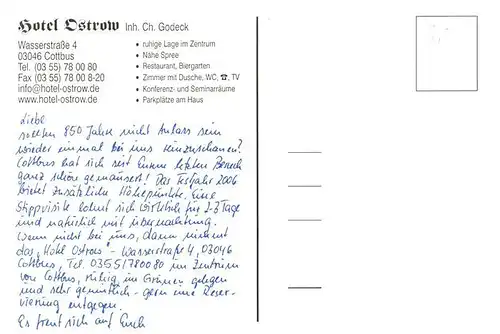 Hotel Ostrow Inh. Ch. Godeck
Wasserstraße 4
03046 Cottbus
Tel. (03 55) 78 00 80
Fax (03 55) 78 00 8-20
info@hotel-ostrow.de
www.hotel-ostrow.de
• ruhige Lage im Zentrum
• Nähe Spree
• Restaurant, Biergarten
• Zimmer mit Dusche, WC, ☎, TV
• Konferenz- und Seminarräume
• Parkplätze am Haus
Liebe
sollten 850 Jahre nicht Anlass sein
wieder einmal bei uns reinzuschauen?
Cottbus hat sich seit Eurem letzten Besuch
ganz schön gemausert! Das Festjahr 2006
bietet zusätzliche Höhepunkte. Eine
Stippvisite lohnt sich wirklich für 2-3 Tage
und natürlich mit Übernachtung.
Wenn nicht bei uns, dann nehmt
das „Hotel Ostrow" - Wasserstraße 4, 03046
Cottbus, Tel. 0355/780080 im Zentrum
von Cottbus, ruhig im Grünen gelegen
und sehr gemütlich - gern eine Reser-
vierung entgegen.
Es freut sich auf Euch